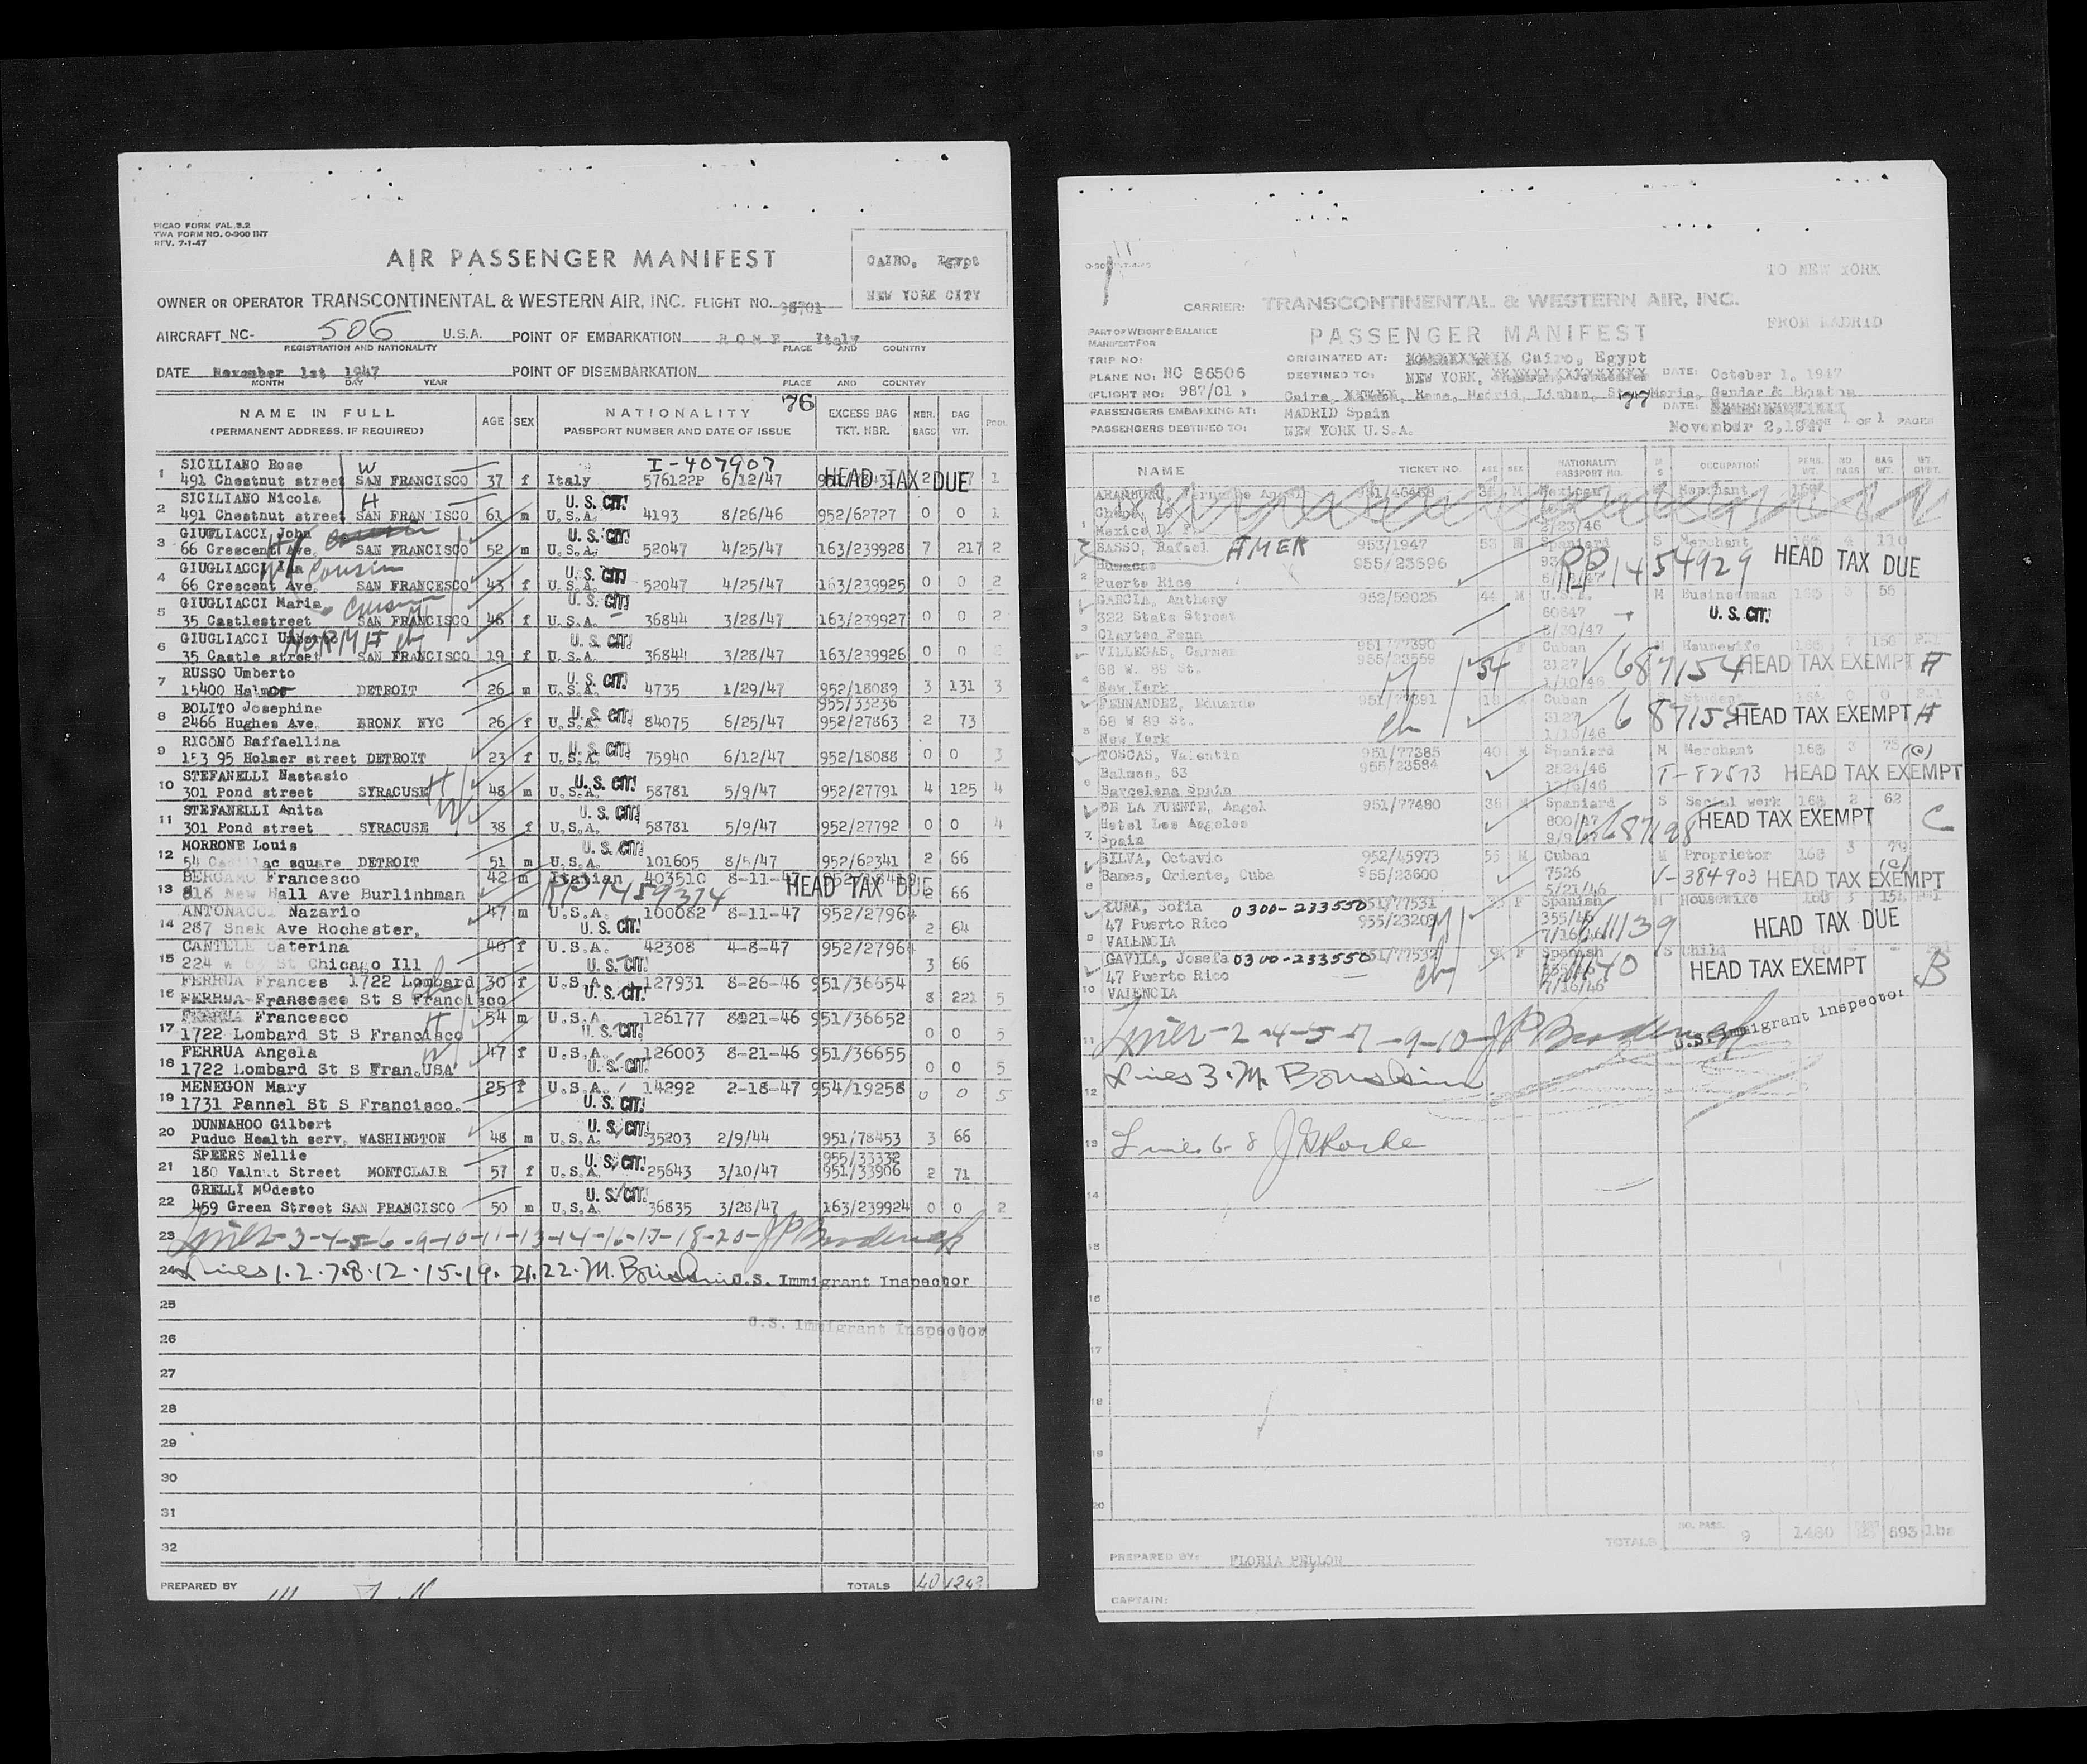 PICAO FORM FAL.2.2
TWA FORM NO. O-900 INT
REV. 7-1-47
AIR PASSENGER MANIFEST
CAIRO, Egypt
NEW YORK CITY
OWNER OR OPERATOR TRANSCONTINENTAL & WESTERN AIR, INC. FLIGHT NO. 98701
AIRCRAFT NC- 506 U.S.A. POINT OF EMBARKATION ROME Italy
REGISTRATION AND NATIONALITY PLACE AND COUNTRY
DATE November 1st 1947 POINT OF DISEMBARKATION
MONTH DAY YEAR PLACE AND COUNTRY
76
NAME IN FULL AGE SEX NATIONALITY EXCESS BAG NBR. BAG
(PERMANENT ADDRESS, IF REQUIRED) PASSPORT NUMBER AND DATE OF ISSUE TKT. NBR. BAGS WT.
SICILIANO Rose W I-407907
1 491 Chestnut street SAN FRANCISCO 37 f Italy 576122P 6/12/47 HEAD TAX DUE 2 1
SICILIANO Nicola H U. S. CIT!
2 491 Chestnut street SAN FRANCISCO 61 m U.S.A. 4193 8/26/46 952/62727 0 0 1
GIUGLIACCI John U. S. CIT!
3 66 Crescent Ave. SAN FRANCISCO 52 m U.S.A. 52047 4/25/47 163/239928 7 217 2
GIUGLIACCI Cousin U. S. CIT!
4 66 Crescent Ave. SAN FRANCESCO 43 f U.S.A. 52047 4/25/47 163/239925 0 0 2
GIUGLIACCI Maria Cousin U. S. CIT!
5 35 Castlestreet SAN FRANCISCO 46 f U.S.A. 36844 3/28/47 163/239927 0 0 2
GIUGLIACCI NORMA ch U. S. CIT!
6 35 Castle street SAN FRANCISCO 19 f U.S.A. 36844 3/28/47 163/239926 0 0 2
RUSSO Umberto U. S. CIT!
7 15400 DETROIT 26 m U.S.A. 4735 1/29/47 952/18089 3 131 3
BOLITO Josephine U. S. CIT! 955/33236
8 2466 Hughes Ave. BRONX NYC 26 f U.S.A. 84075 6/25/47 952/27863 2 73
RICONO Raffaellina U. S. CIT!
9 153 95 Holmer street DETROIT 23 f U.S.A. 75940 6/12/47 952/18088 0 0 3
STEFANELLI Nastasio H U. S. CIT!
10 301 Pond street SYRACUSE 48 m U.S.A. 58781 5/9/47 952/27791 4 125 4
STEFANELLI Anita W U. S. CIT!
11 301 Pond street SYRACUSE 38 f U.S.A. 58781 5/9/47 952/27792 0 0 4
MORRONE Louis U. S. CIT!
12 54 Cadillac square DETROIT 51 m U.S.A. 101605 8/5/47 952/62341 2 66
BERGAMO Francesco 42 m Italian 403510 8-11-47
13 818 New Hall Ave Burlinhman RP 1459374 HEAD TAX DUE 2 66
ANTONACCI Nazario 47 m U.S.A. 100082 8-11-47 952/27964
14 287 Snek Ave Rochester, U. S. CIT! 2 64
CANTELE Caterina 40 f U.S.A. 42308 4-8-47 952/27964
15 224 W 63 St Chicago Ill U. S. CIT! 3 66
FERRUA Frances 1722 Lombard 30 f 127931 8-26-46 951/36654
16 FERRUA Francesco St S Francisco U. S. CIT! 8 221 5
FERRUA Francesco H 54 m U.S.A 126177 8-21-46 951/36652
17 1722 Lombard St S Francisco U. S. CIT! 0 0 5
FERRUA Angela W 47 f U.S.A. 126003 8-21-46 951/36655
18 1722 Lombard St S Fran.USA U. S. CIT! 0 0 5
MENEGON Mary 25 f U.S.A. 14292 2-18-47 954/19258
19 1731 Pannel St S Francisco. U. S. CIT! 0 0 5
DUNNAHOO Gilbert U. S. CIT!
20 Puduc Health serv. WASHINGTON 48 m U.S.A. 35203 2/9/44 951/78453 3 66
SPEERS Nellie U. S. CIT! 955/33332
21 180 Valnut Street MONTCLAIR 57 f U.S.A. 25643 3/10/47 951/33906 2 71
GRELLI Modesto U. S. CIT!
22 459 Green Street SAN FRANCISCO 50 m U.S.A. 36835 3/28/47 163/239924 0 0 2
23 Lines-3-4-5-6-9-10-11-13-14-16-17-18-20-JP Broderick
24 Lines 1.2.7.8.12.15.19.21.22. M. U.S. Immigrant Inspector
25
U.S. Immigrant Inspector
26
27
28
29
30
31
32
PREPARED BY TOTALS 40
TO NEW YORK
CARRIER: TRANSCONTINENTAL & WESTERN AIR, INC.
FROM MADRID
PART OF WEIGHT & BALANCE
MANIFEST FOR
PASSENGER MANIFEST
TRIP NO: ORIGINATED AT: Cairo, Egypt
PLANE NO: NC 86506 DESTINED TO: NEW YORK, DATE: October 1, 1947
(FLIGHT NO: 987/01 ) Cairo, Rome, Madrid, Lisbon, Maria, Gandar & Boston
PASSENGERS EMBARKING AT: MADRID Spain DATE:
PASSENGERS DESTINED TO: NEW YORK U.S.A. November 2,1947 1 OF 1 PAGES
NAME TICKET NO. AGE SEX NATIONALITY M OCCUPATION PERS. NO. BAG WT.
PASSPORT NO. S WT. BAGS WT.
951/46468 Mexican Merchant
Mexico D. F. 2/23/46
1 SASSO, Rafael AMER 953/1947 53 M Spaniard S Merchant 4 110
955/23696 RP 1454929 HEAD TAX DUE
2 Puerto Rico
GARCIA, Anthony 952/59025 44 M U.S.A. M Businessman 165 3 55
322 State Street 60647 U. S. CIT!
3 Clayton Penn 2/20/47
VILLEGAS, Carmen 951/77390 F Cuban Housewife 158
68 W. 89 St. 955/23559 M 54 3127 V 687154 HEAD TAX EXEMPT H
4 New York 1/10/46
FERNANDEZ, Eduardo 951/77391 18 Cuban S Student 0 0
68 W 89 St. ch 3127 V 687155 HEAD TAX EXEMPT H
5 New York 1/10/46
TOSCAS, Valentin 951/77385 40 M Spaniard M Merchant 165 3 75 (C)
Balmes, 63 955/23584 2524/46 T-82573 HEAD TAX EXEMPT
6 Barcelona Spain
DE LA FUENTE, Angel 951/77480 36 M Spaniard S Social work 165 2 62
Hotel Los Angeles 800/47 V687198 HEAD TAX EXEMPT C
7 Spain
SILVA, Octavio 952/45973 55 M Cuban M Proprietor 165 3 79 (C)
8 Banes, Oriente, Cuba 955/23600 7526 V-384903 HEAD TAX EXEMPT
5/21/46
LUNA, Sofia 0300-233550 951/77531 F Spanish M Housewife 165 3
47 Puerto Rico 955/23209 M 355/46 HEAD TAX DUE
9 VALENCIA 7/16/46
GAVILA, Josefa 0300-233550 951/77532 9 F Spanish S Child
47 Puerto Rico ch HEAD TAX EXEMPT B
10 VALENCIA 7/16/46
11 Lines-2-4-5-7-9-10-JP Broderick U.S. Immigrant Inspector
Lines 3. M.
12
13 Lines 6-8
14
15
16
17
18
19
20
TOTALS NO. PASS. 9 1480 593 lbs
PREPARED BY: FLORIA PELLON
CAPTAIN: